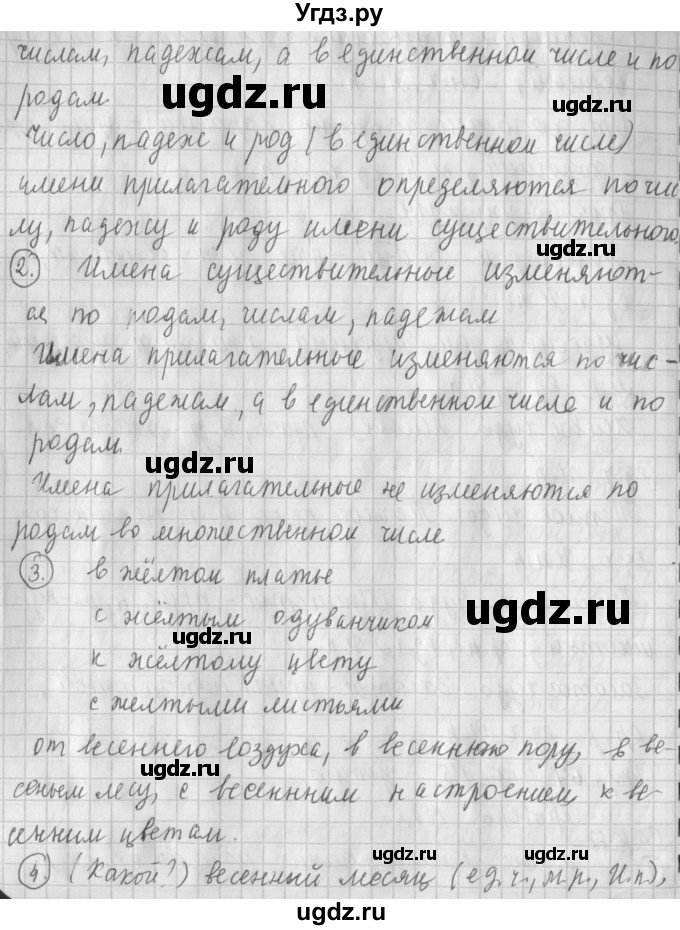 Угдз.ру
числам, падежам, а в единственном числе и по
родам
ugdz.ru
ugdz.ru
Число, падеж и род (в единственном числе)
имени прилагательного определяются по чис
лу, падежу и роду имени существительного.
ugdz.ru
2. Имена существительные изменяют-
ся по родам, числам, падежам
Имена прилагательные изменяются по чис-
лам, падежам, а в единственном числе и по
родам.
ugdz.ru
Имена прилагательные не изменяются по
родам во множественном числе
3. в жёлтом платье
с жёлтым одуванчиком
ugdz.ru
ugdz.ru
к жёлтому цвету
с желтыми листьями
от весеннего воздуха, в весеннюю пору, в ве-
ugdz.ru
сеньем лесу, с весеннним настроением к ве-
сенним цветам.
ugdz.ru
ugdz.ru
4. (Какой?) весенный месяц (ед.ч., м.р., И.п),
ugdz.ru